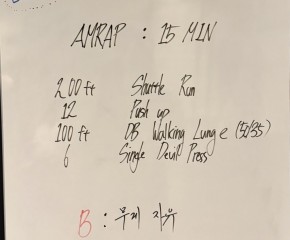 AMRAP : 15 MIN
200 ft Shuttle Run
12 Push up
100 ft DB Walking Lunge (50/35)
6 Single Devil Press
B : 무게 자유